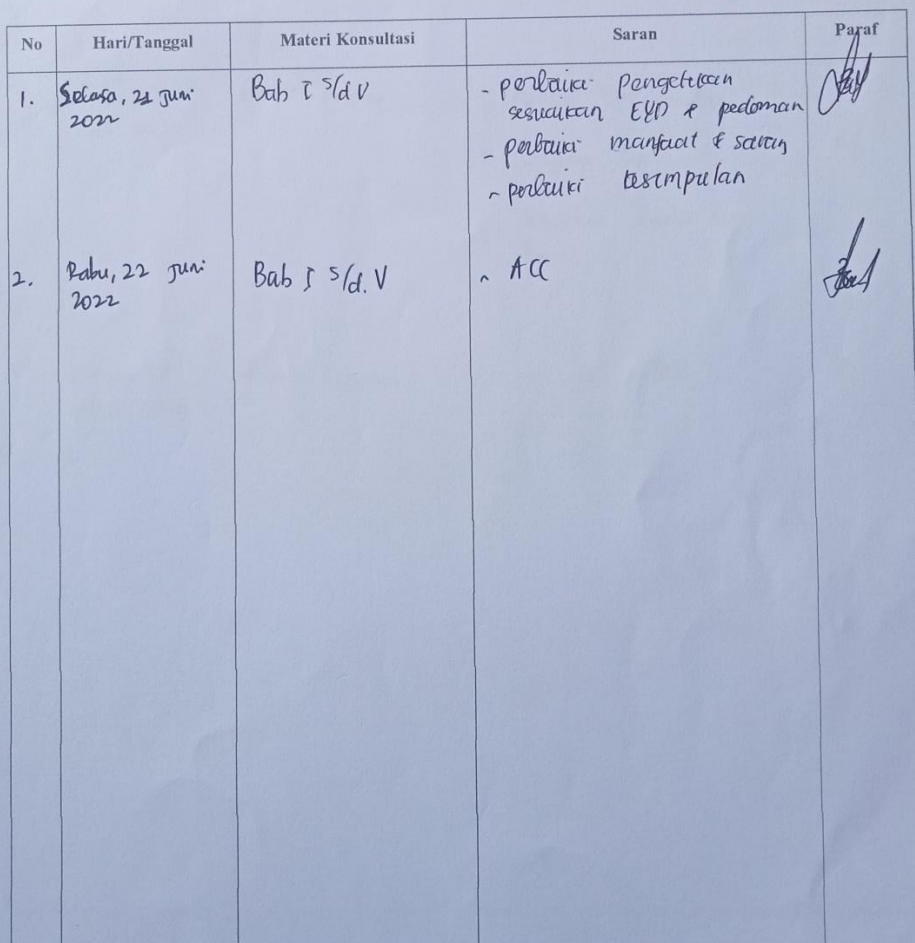 No Hari/Tanggal Materi Konsultasi Saran Paraf
1. Selasa, 21 Juni Bab I s/d V - perbaiki pengetikan
2022 sesuaikan EYD & pedoman
- perbaiki manfaat & saran
- perbaiki kesimpulan
2. Rabu, 22 Juni Bab I s/d. V - ACC
2022